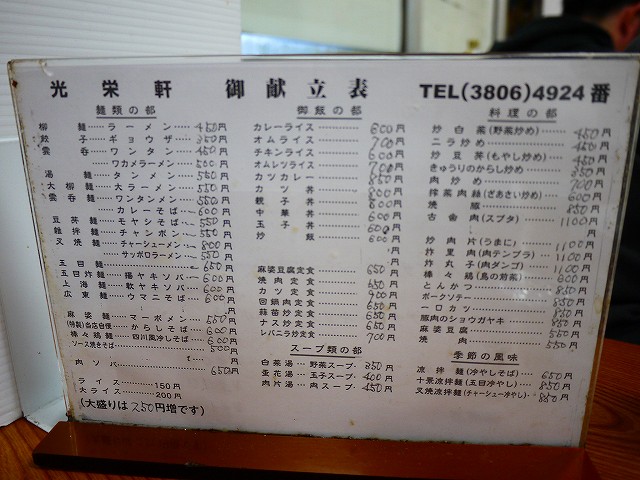 光栄軒 御献立表 TEL(3806)4924番
麺類の部
柳麺……ラーメン……450円
餃子……ギョウザ……350円
雲呑……ワンタン……450円
ワカメラーメン……500円
湯麺……タンメン……550円
大柳麺……大ラーメン……550円
雲呑麺……ワンタンメン……550円
カレーそば……600円
豆芽麺……モヤシそば……550円
麺拌麺……チャンポン……550円
叉焼麺……チャーシューメン……800円
サッポロラーメン……550円
五目麺……650円
五目炸麺……揚ヤキソバ……600円
上海麺……軟ヤキソバ……600円
広東麺……ウマニそば……600円
麻婆麺……マーボーメン……550円
(特製)当店自慢……からしそば……600円
棒々鶏麺……四川風冷しそば……600円
ソース焼きそば……500円
肉ソバ……650円
ライス……150円
大ライス……200円
(大盛りは250円増です)
御飯の部
カレーライス……600円
オムライス……700円
チキンライス……600円
オムレツライス……700円
カツカレー……850円
カツ丼……800円
親子丼……600円
中華丼……600円
玉子丼……600円
炒飯……600円
麻婆豆腐定食……650円
焼肉定食……650円
カツ定食……900円
回鍋肉定食……650円
蒜苗炒定食……650円
ナス炒定食……650円
レバニラ炒定食……700円
スープ類の部
白菜湯……野菜スープ……350円
蛋花湯……玉子スープ……400円
肉片湯……肉スープ……450円
料理の部
炒白菜(野菜炒め)……450円
ニラ炒め……450円
炒豆芽(もやし炒め)……450円
きゅうりのからし炒め……350円
肉炒め……700円
搾菜肉絲(ざあさい炒め)……600円
焼豚……850円
古歯肉(スブタ)……1100円
炒肉片(うまに)……1100円
炸里肉(肉テンプラ)……1100円
炸丸子(肉ダンゴ)……1100円
棒々鶏(鳥の前菜)……600円
とんかつ……850円
ポークソテー……850円
一口カツ……850円
豚肉のショウガヤキ……850円
麻婆豆腐……550円
焼肉……550円
季節の風味
涼拌麺(冷やしそば)……650円
十景涼拌麺(五目冷やし)……850円
叉焼涼拌麺(チャーシュー冷やし)……850円